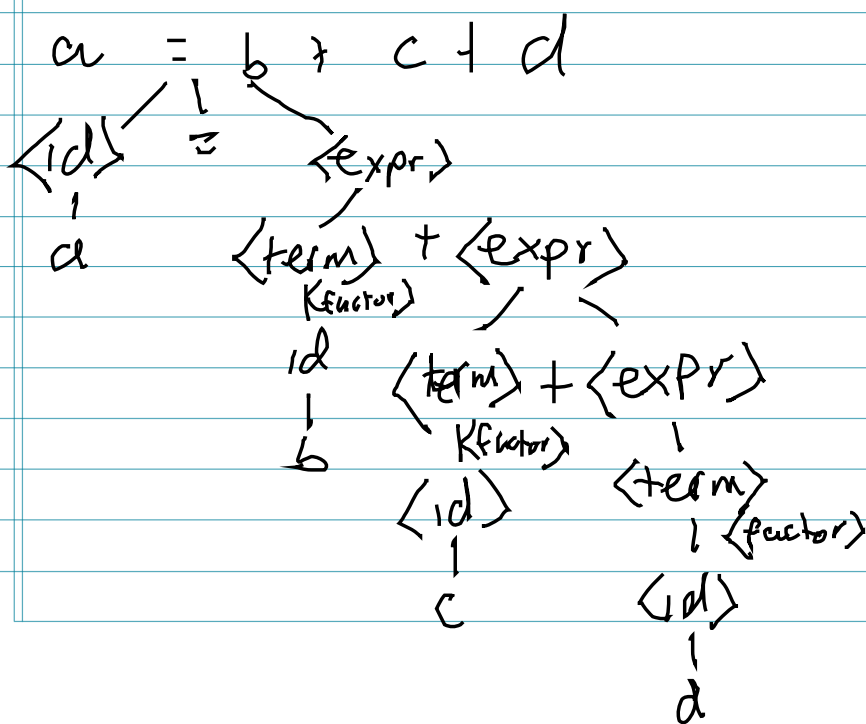 a = b + c + d
<id> = <expr>
a <term> + <expr>
<factor>
id <term> + <expr>
b <factor> <term>
<id> <factor>
c <id>
d